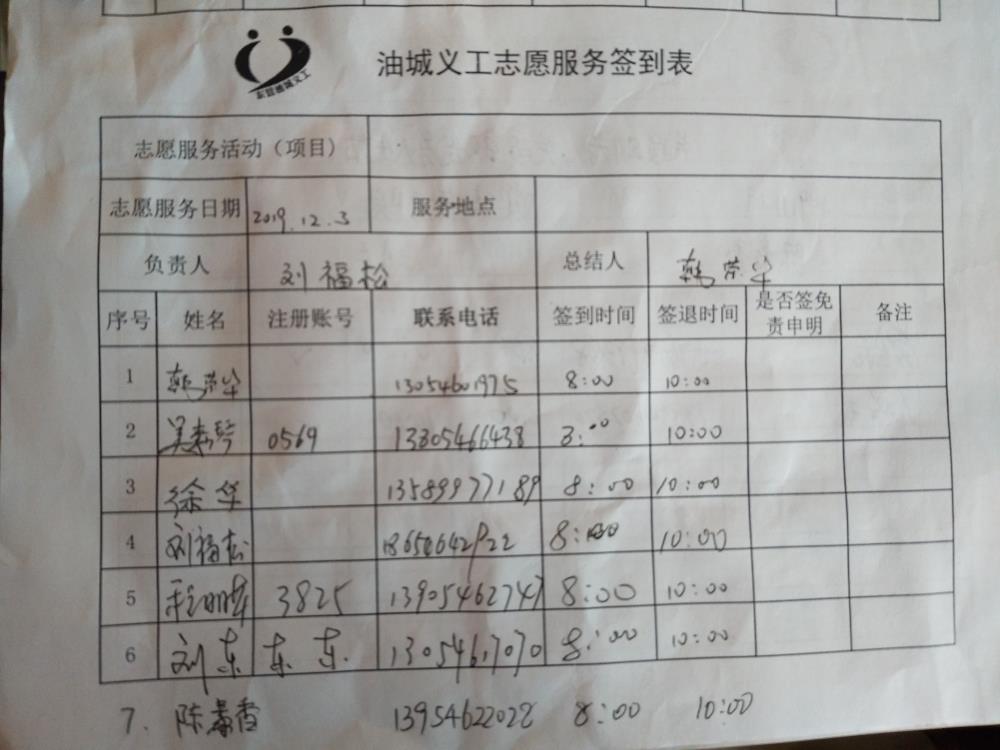 东营油城义工
油城义工志愿服务签到表
志愿服务活动（项目）
志愿服务日期 2019.12.3 服务地点
负责人 刘福松 总结人 韩荣华
序号 姓名 注册账号 联系电话 签到时间 签退时间 是否签免责申明 备注
1 韩荣华 13054601975 8:00 10:00
2 0569 13305466438 8:00 10:00
3 徐华 13589977189 8:00 10:00
4 刘福松 18650642922 8:00 10:00
5 3825 13905462747 8:00 10:00
6 刘东 东东. 13054617070 8:00 10:00
7. 陈 13954622028 8:00 10:00